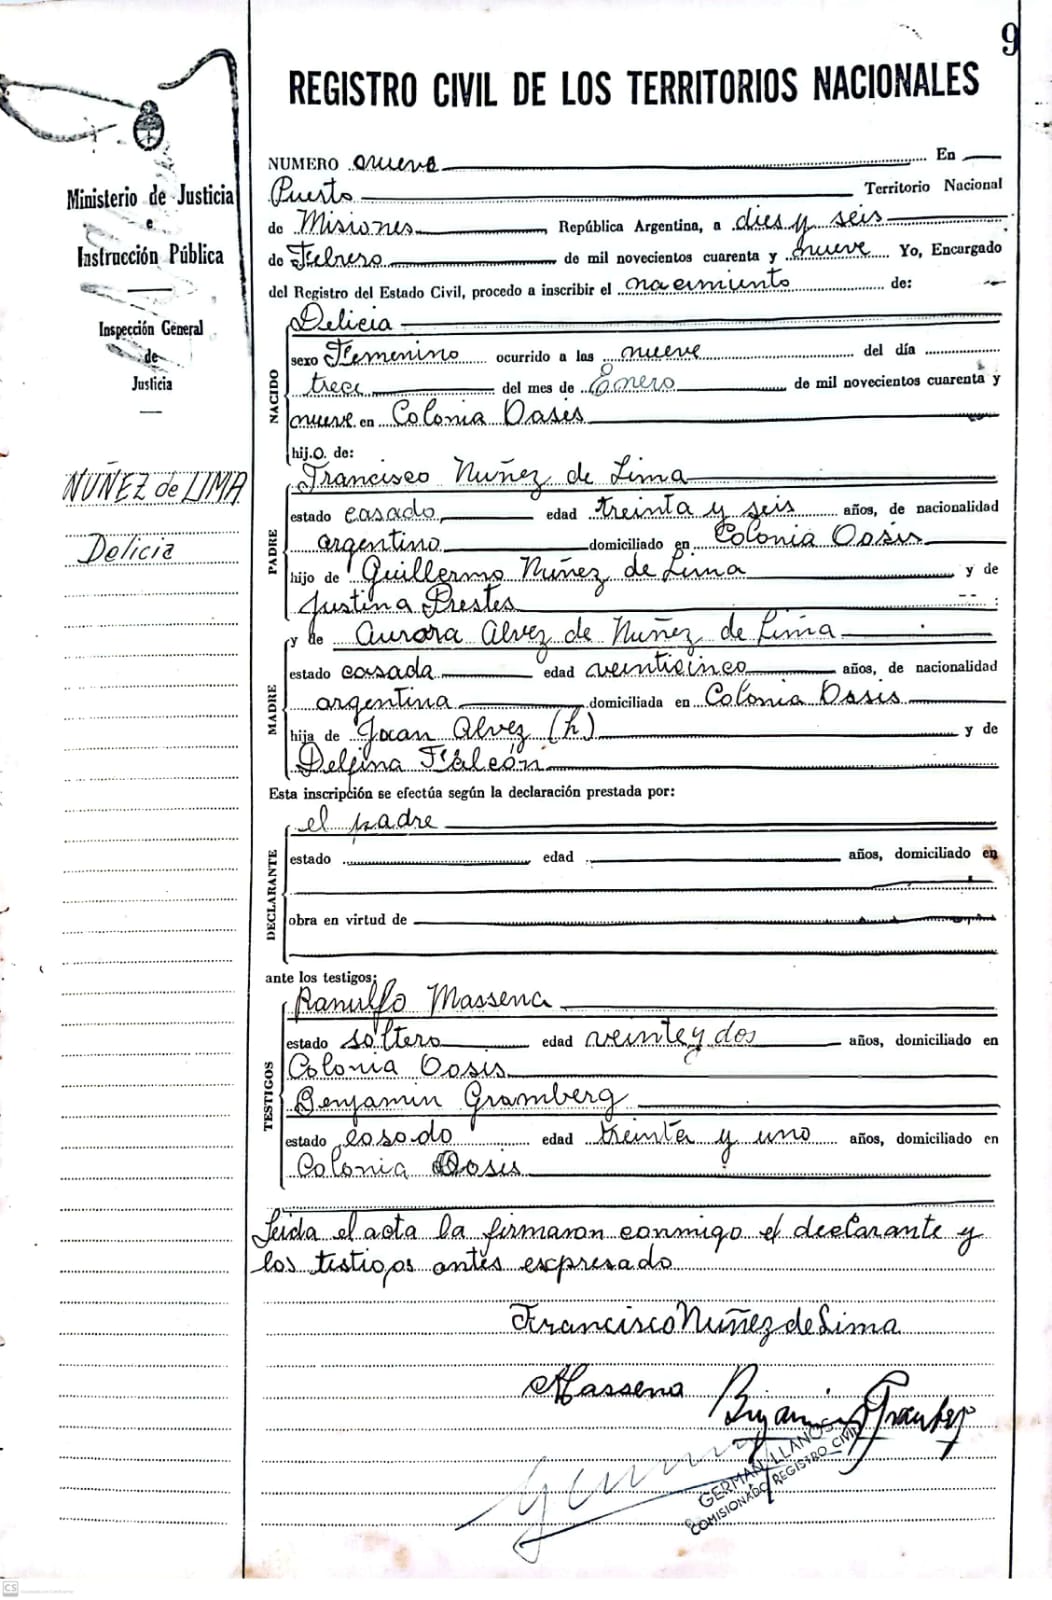 9
REGISTRO CIVIL DE LOS TERRITORIOS NACIONALES
Ministerio de Justicia
e
Instrucción Pública
Inspección General
de
Justicia
NUÑEZ de LIMA
Delicia
NUMERO nueve En
Puerto Territorio Nacional
de Misiones República Argentina, a dies y seis
de Febrero de mil novecientos cuarenta y nueve Yo, Encargado
del Registro del Estado Civil, procedo a inscribir el nacimiento de:
NACIDO
Delicia
sexo Femenino ocurrido a las nueve del día
trece del mes de Enero de mil novecientos cuarenta y
nueve en Colonia Oasis
hij.o. de:
PADRE
Francisco Nuñez de Lima
estado casado edad treinta y seis años, de nacionalidad
argentino domiciliado en Colonia Oasis
hijo de Guillermo Nuñez de Lima y de
Justina Prestes
MADRE
y de Aurora Alvez de Nuñez de Lima
estado casada edad veinticinco años, de nacionalidad
argentina domiciliada en Colonia Oasis
hija de Juan Alvez (h) y de
Delfina Falcón
Esta inscripción se efectúa según la declaración prestada por:
DECLARANTE
el padre
estado edad años, domiciliado en
obra en virtud de
ante los testigos:
TESTIGOS
Ranulfo Massena
estado soltero edad veinte y dos años, domiciliado en
Colonia Oasis
Benjamin Gramberg
estado casado edad treinta y uno años, domiciliado en
Colonia Oasis
Leida el acta la firmaron conmigo el declarante y
los testigos antes expresado
Francisco Nuñez de Lima
Massena
GERMAN LLANOS
COMISIONADO REGISTRO CIVIL
CS